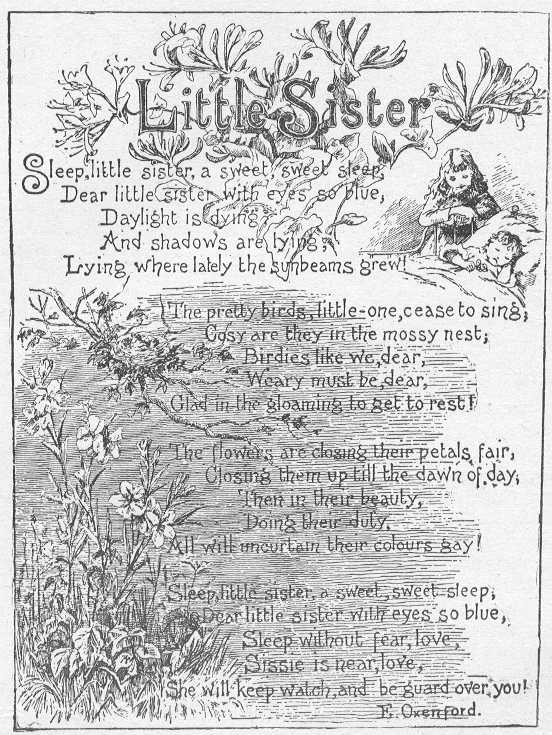 Little Sister
Sleep, little sister, a sweet, sweet sleep,
Dear little sister with eyes so blue,
Daylight is dying
And shadows are lying,
Lying where lately the sunbeams grew!
The pretty birds, little-one, cease to sing;
Cosy are they in the mossy nest;
Birdies like we, dear,
Weary must be, dear,
Glad in the gloaming to get to rest!
The flowers are closing their petals fair,
Closing them up till the dawn of day;
Then in their beauty,
Doing their duty,
All will uncurtain their colours gay!
Sleep, little sister, a sweet, sweet sleep;
Dear little sister with eyes so blue,
Sleep without fear, love,
Sissie is near, love,
She will keep watch, and be guard over, you!
E. Oxenford.